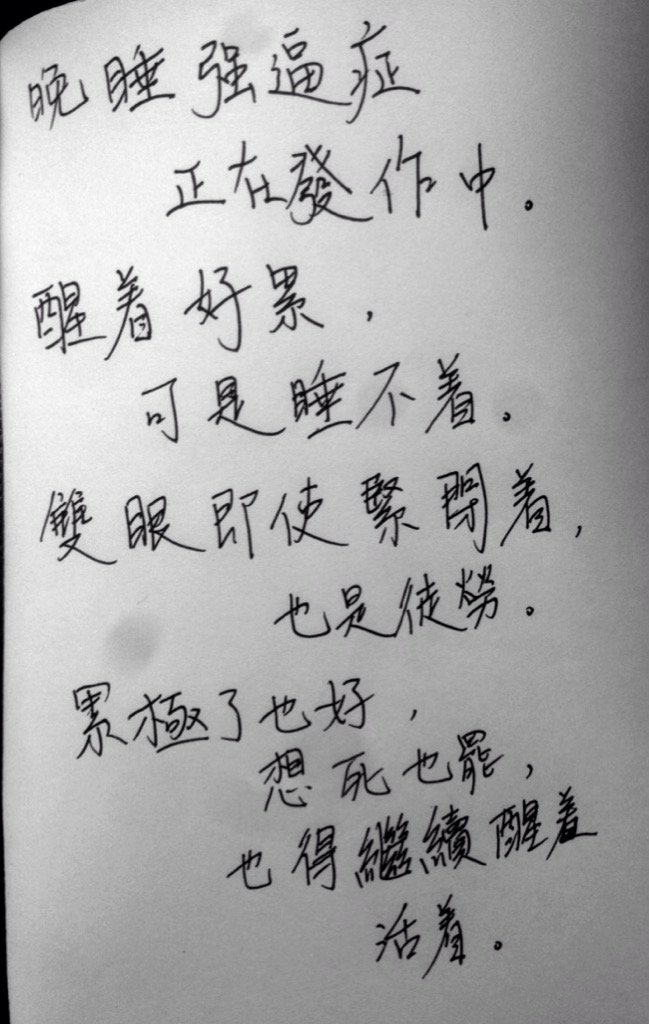 晚睡强逼症
正在發作中。
醒着好累，
可是睡不着。
雙眼即使緊閉着，
也是徒勞。
累極了也好，
想死也罷，
也得繼續醒着
活着。